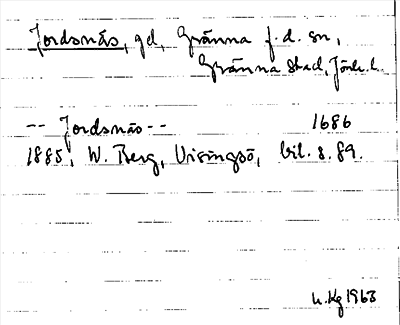 Jordsnäs, gd, Gränna f.d. sn,
Gränna stad, Jönk.l.
-- Jordsnäs -- 1686
1885, W. Berg, Visingsö, bil. s. 89.
1963